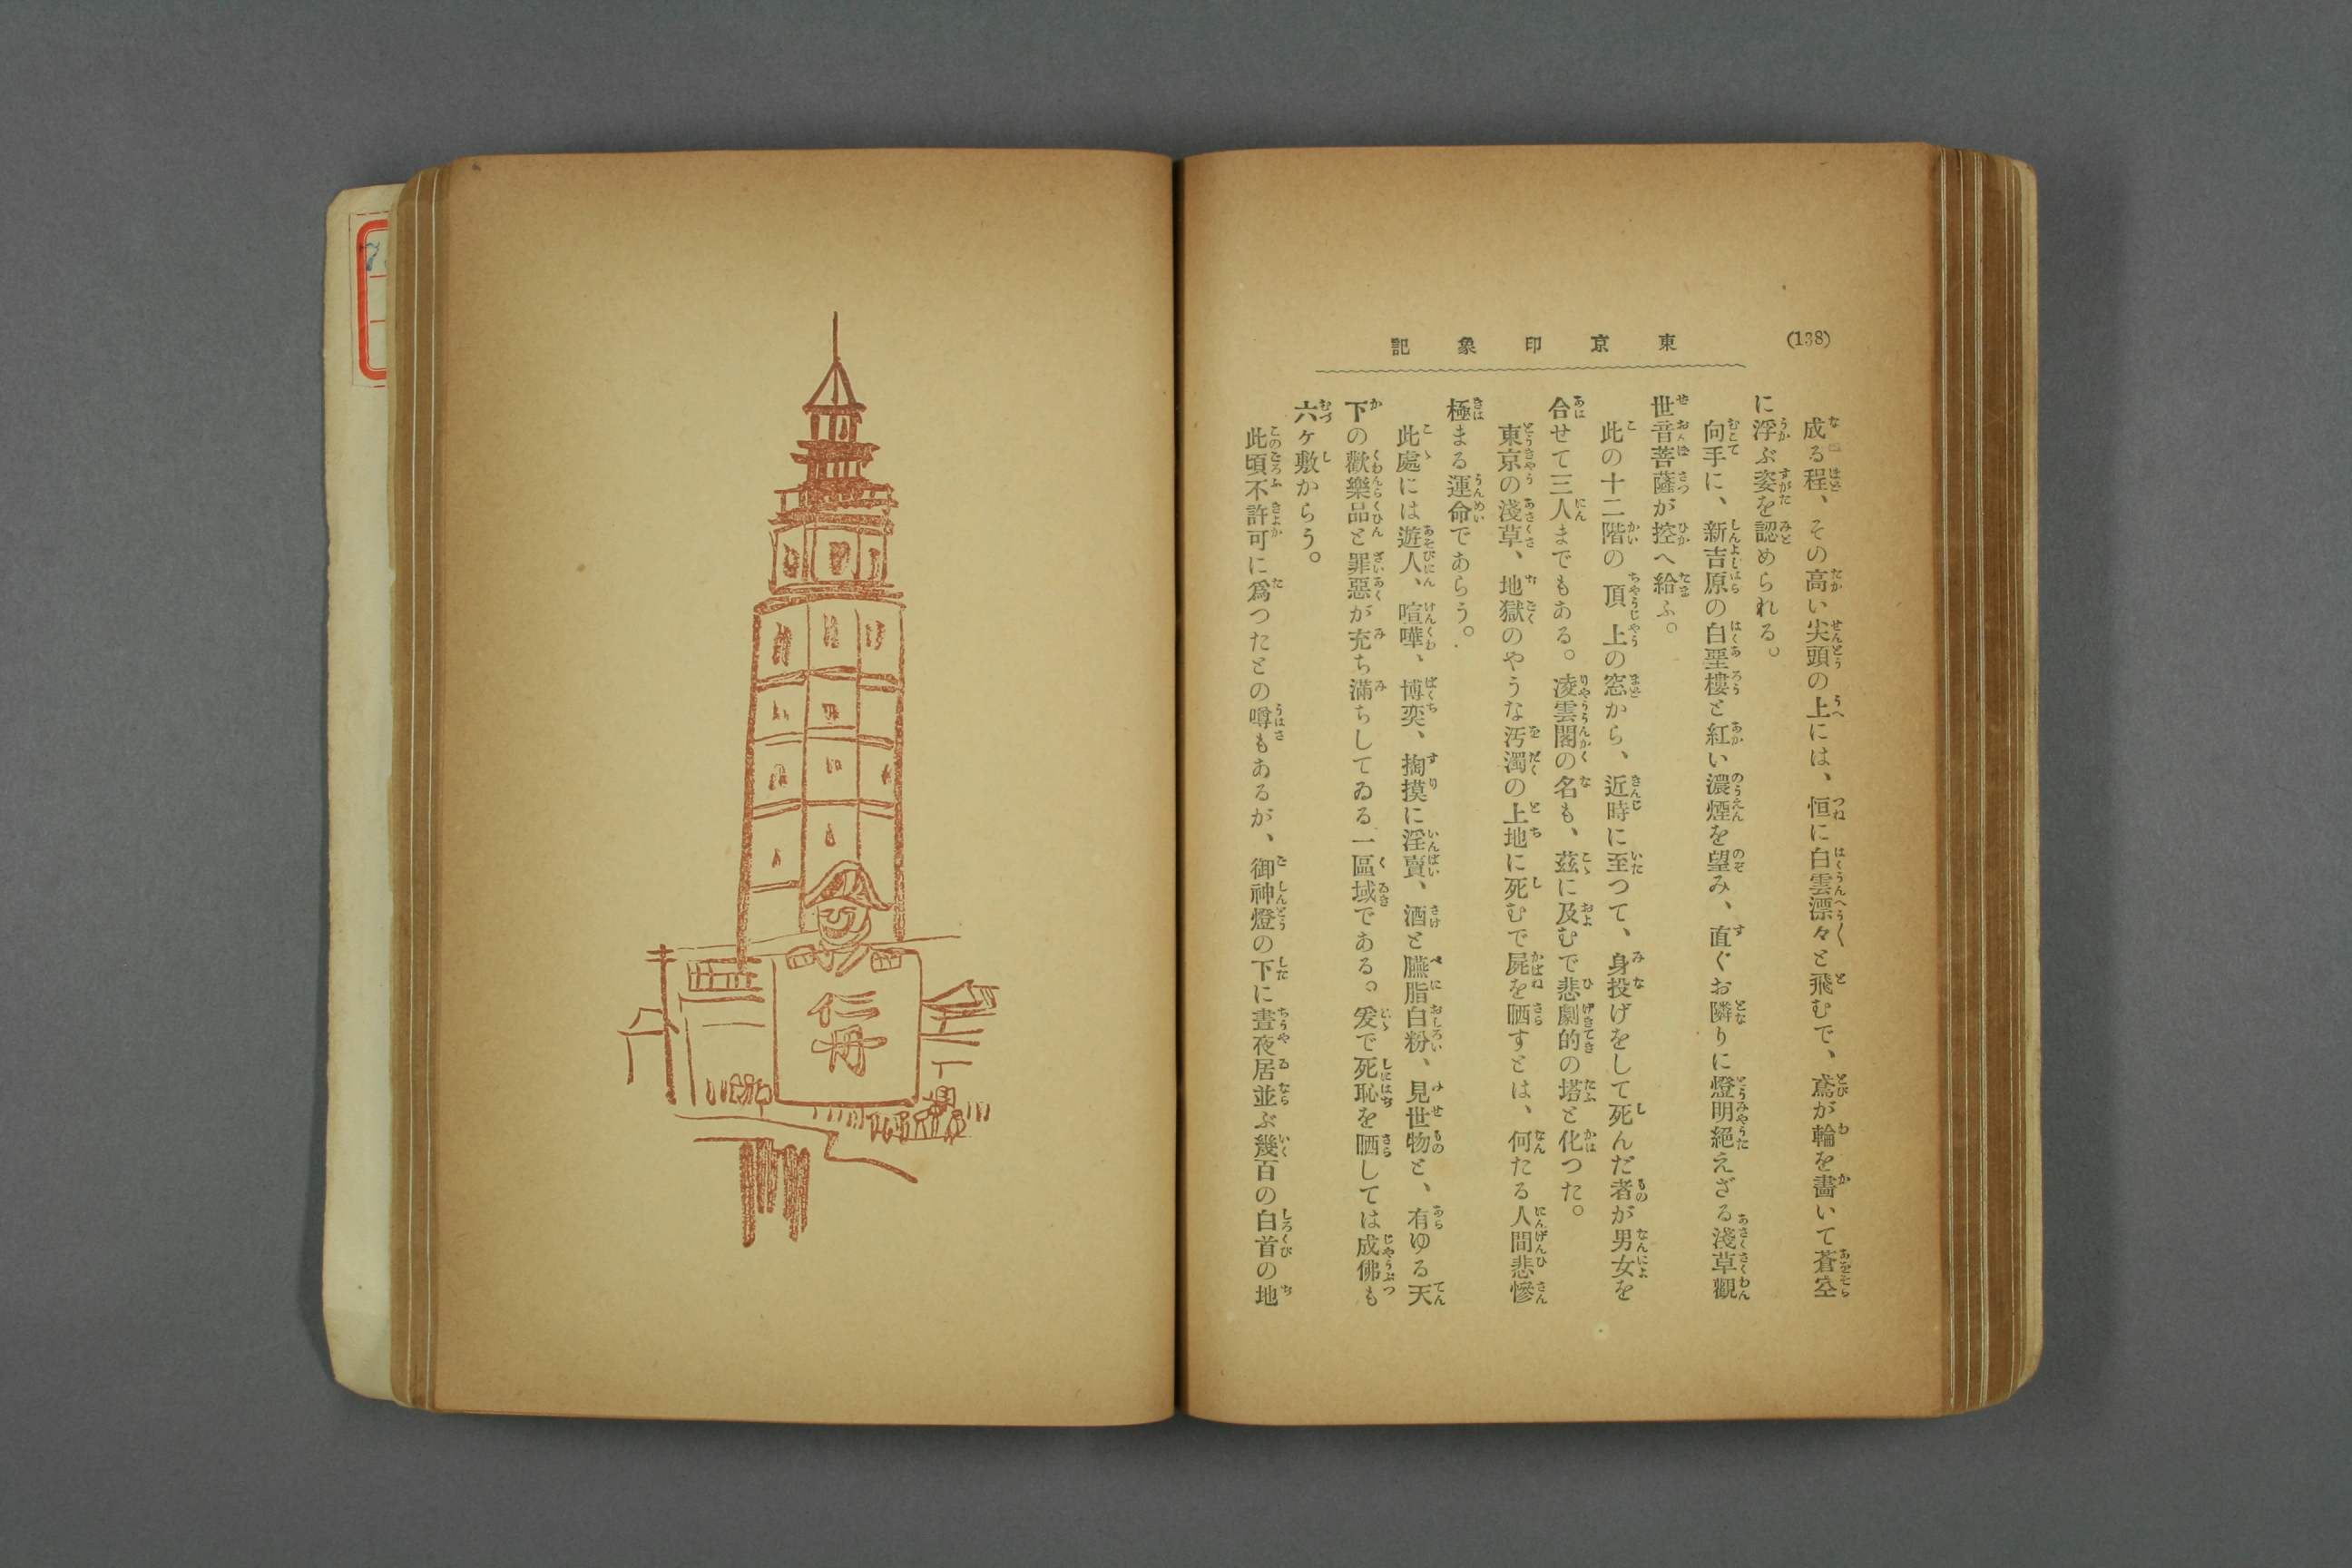 (138)
東京印象記
成る程、その高い尖頭の上には、恒に白雲漂々と飛むで、鳶が輪を畵いて蒼空
に浮ぶ姿を認められる。
向手に、新吉原の白堊樓と紅い濃煙を望み、直ぐお隣りに燈明絕えざる淺草觀
世音菩薩が控へ給ふ。
此の十二階の頂上の窓から、近時に至つて、身投げをして死んだ者が男女を
合せて三人までもある。凌雲閣の名も、茲に及むで悲劇的の塔と化つた。
東京の淺草、地獄のやうな汚濁の土地に死むで屍を晒すとは、何たる人間悲慘
極まる運命であらう。
此處には遊人、喧嘩、博奕、掏摸に淫賣、酒と臙脂白粉、見世物と、有ゆる天
下の歡樂品と罪惡が充ち滿ちしてゐる一區域である。爰で死恥を晒しては成佛も
六ケ敷からう。
此頃不許可に爲つたとの噂もあるが、御神燈の下に晝夜居並ぶ幾百の白首の地
仁丹